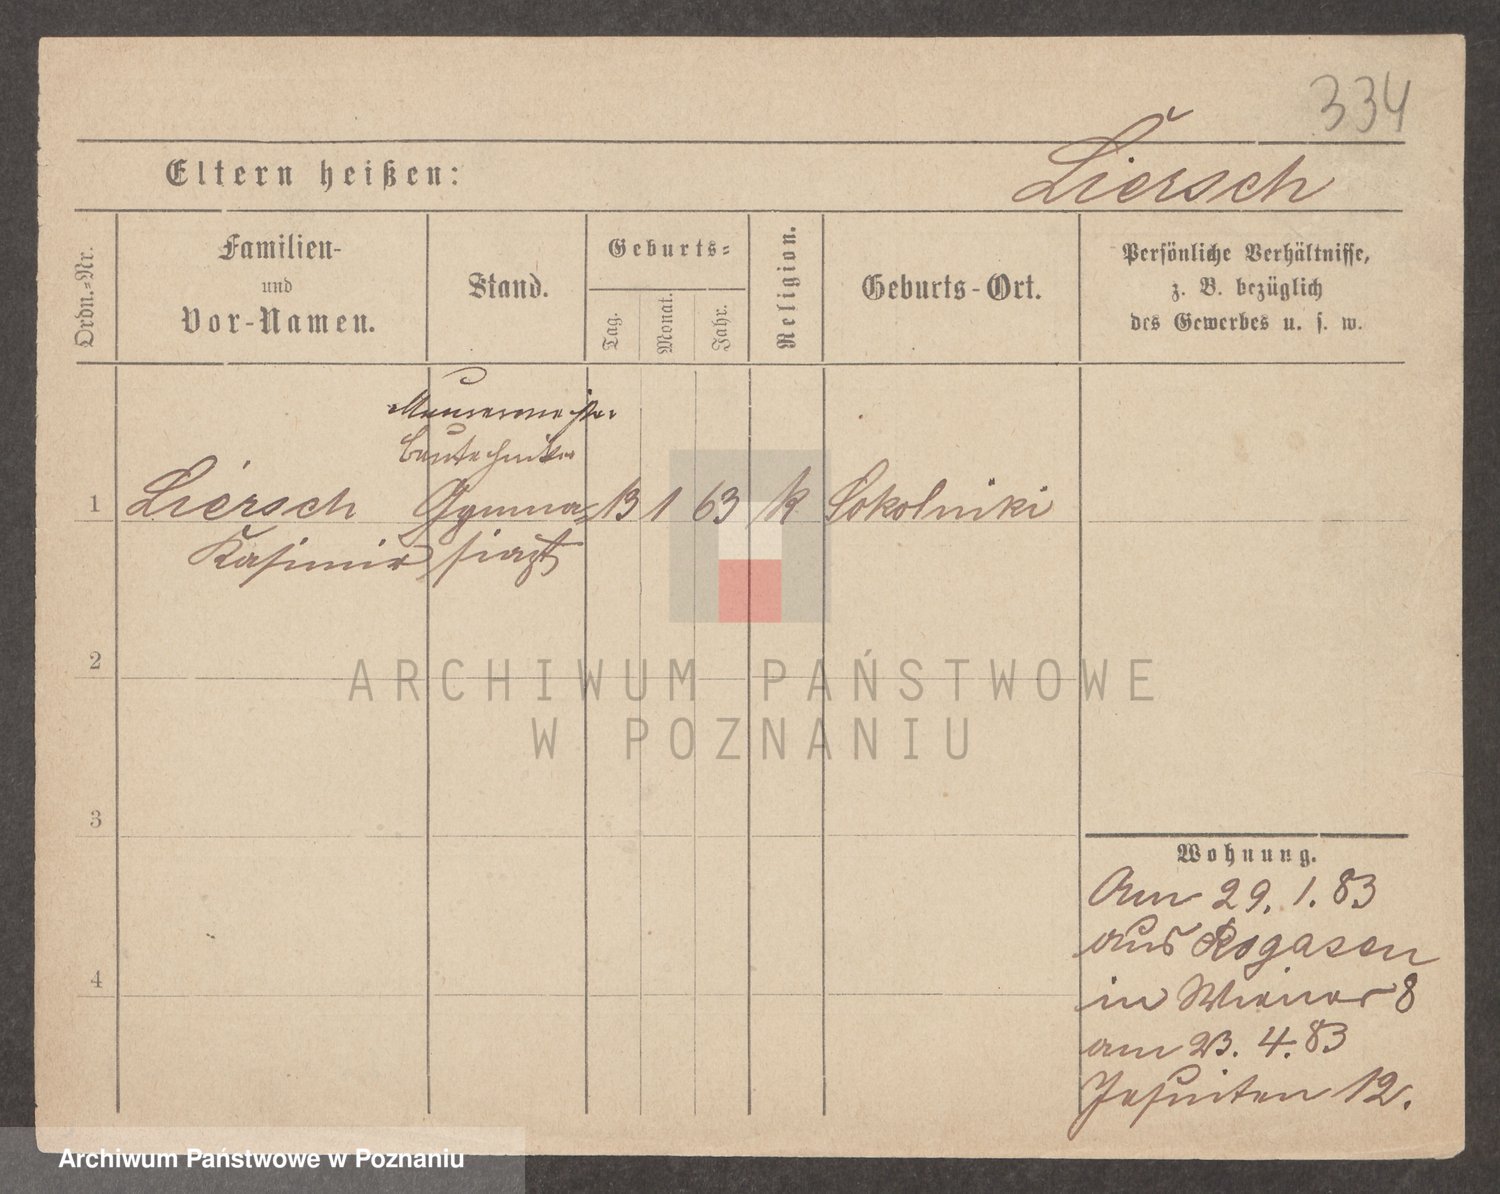 334
Eltern heißen:
Liersch
Ordn.-Nr.
Familien-
und
Vor-Namen.
Stand.
Geburts-
Tag.
Monat.
Jahr.
Religion.
Geburts-Ort.
Persönliche Verhältnisse,
z. B. bezüglich
des Gewerbes u. s. w.
Maurermeister
Bautechniker
1 Liersch Gymna- 13 1 63 k Sokolniki
Kasimir siast
2
3
4
Wohnung.
Am 29. 1. 83
aus Rogasen
in Wiener 8
am 23. 4. 83
Jesuiten 12.
ARCHIWUM PAŃSTWOWE
W POZNANIU
Archiwum Państwowe w Poznaniu